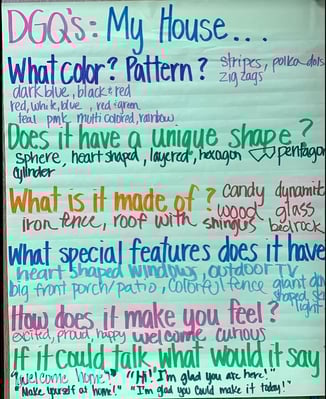 DGQ's: My House...
What color? Pattern? stripes, polka dots
zig zags
dark blue, black & red
red, white, blue, red & green
teal pink multi colored, rainbow
Does it have a unique shape?
sphere, heart shaped, layered, hexagon pentagon
cylinder
What is it made of? candy dynamite
wood glass
iron fence, roof with shingles bedrock
What special features does it have
heart shaped windows, outdoor TV
big front porch/patio, colorful fence giant
shaped
light
How does it make you feel?
excited, proud, happy welcome curious
If it could talk, what would it say
"Welcome home!" "Hi! I'm glad you are here!"
"Make yourself at home!" "I'm glad you could make it today!"